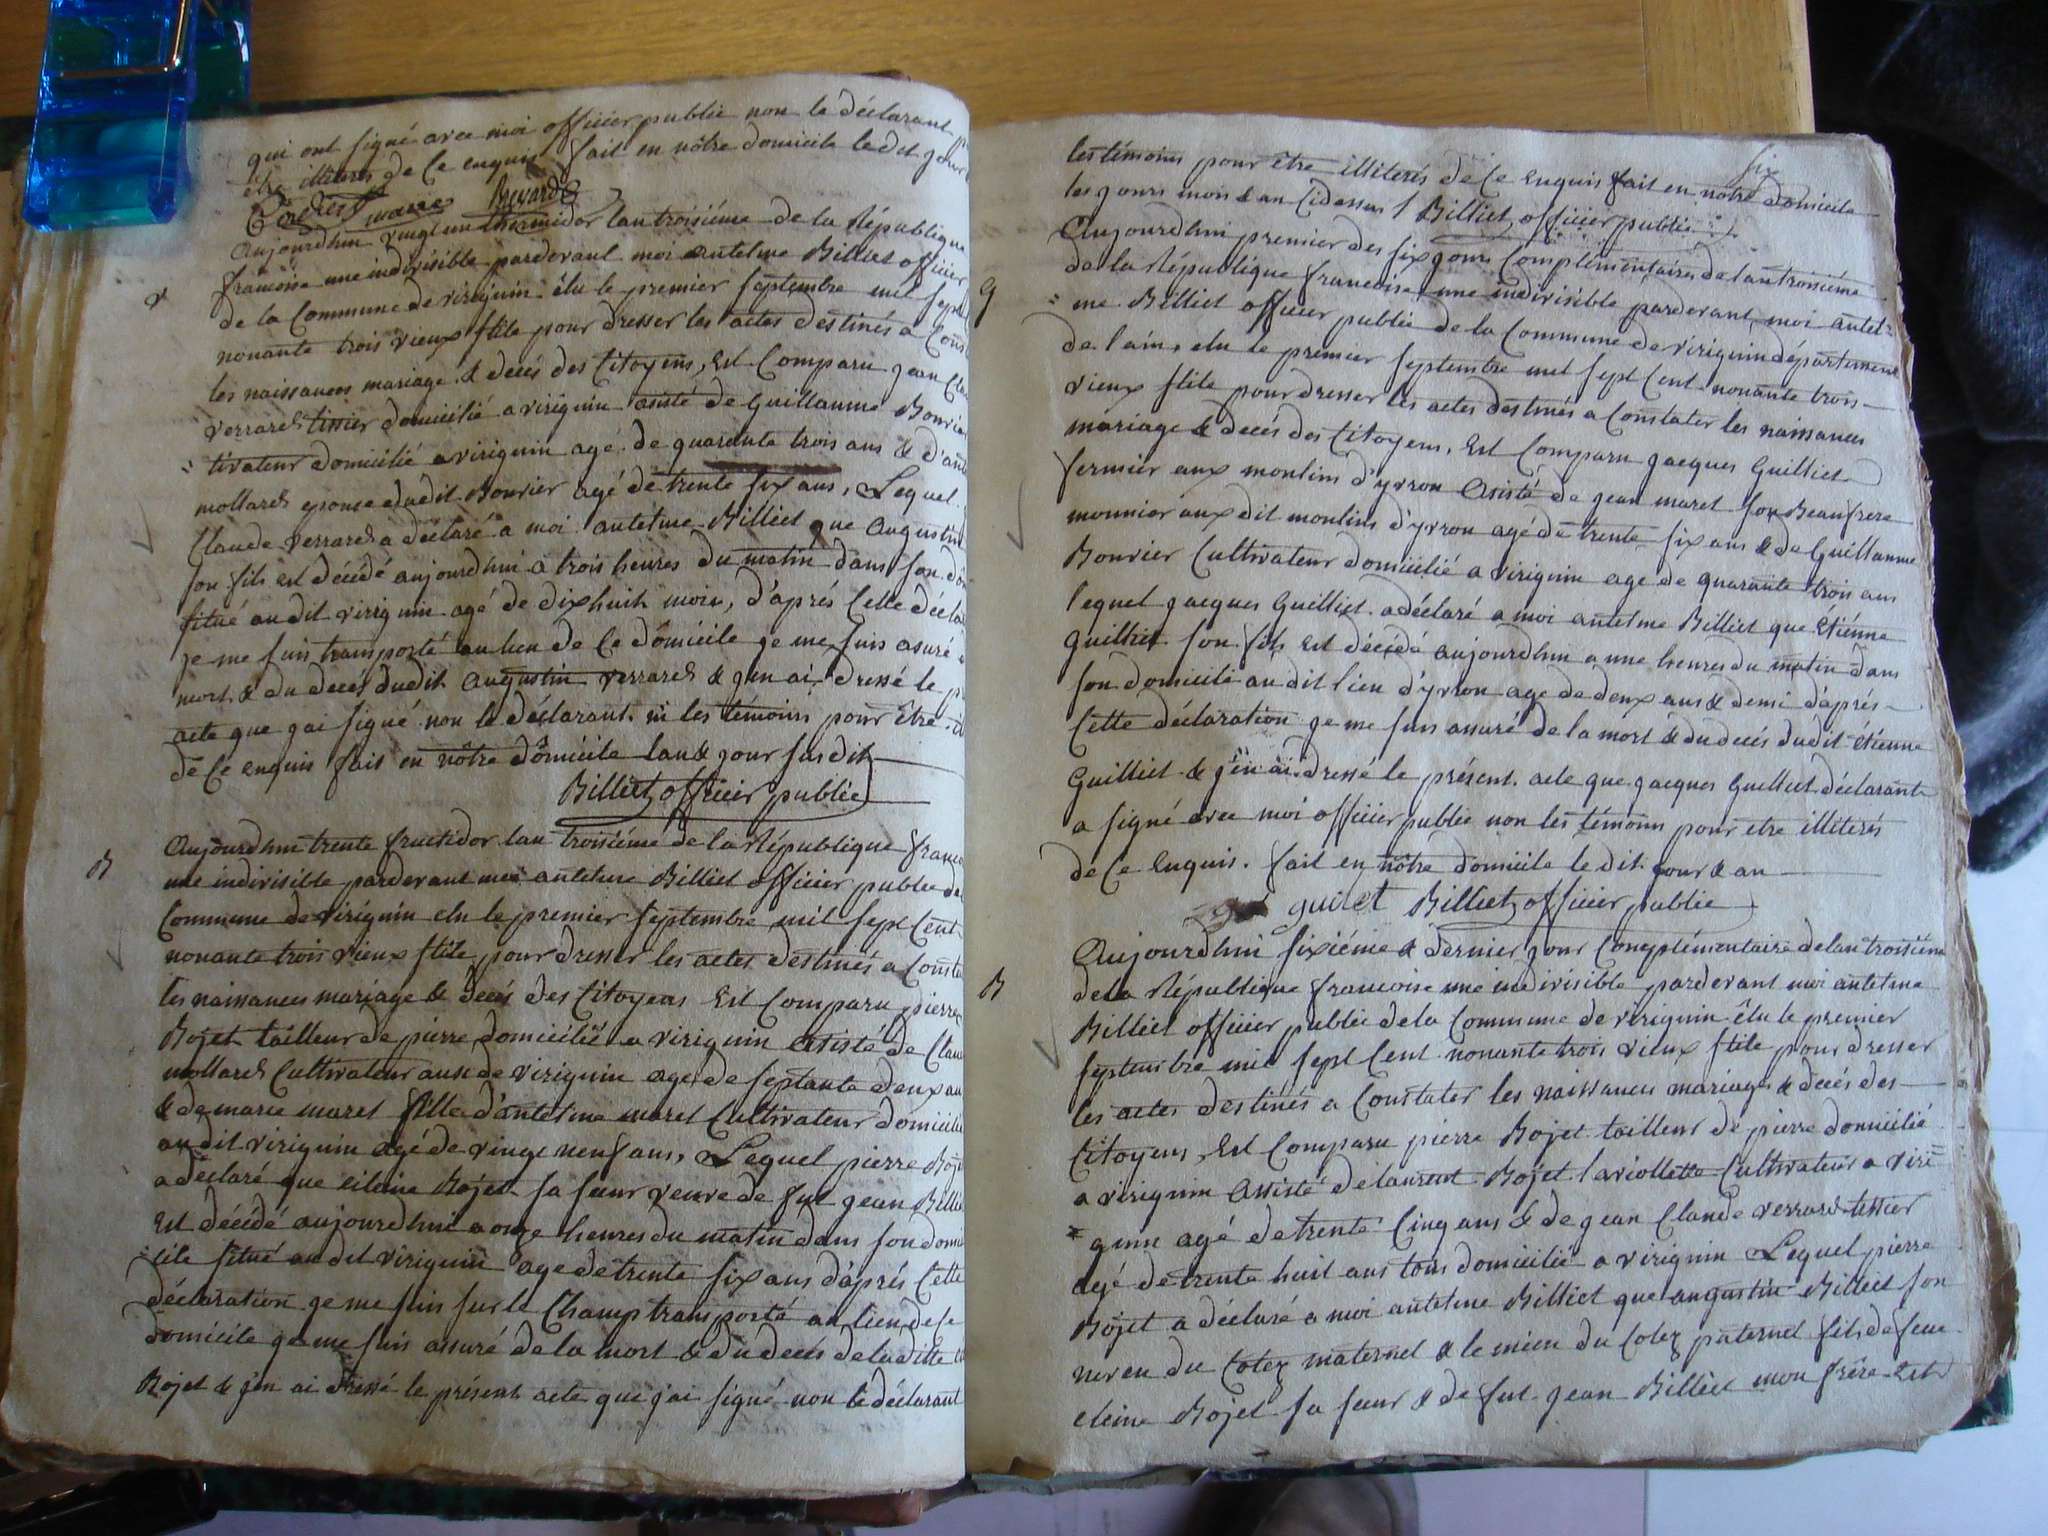 qui ont signé avec moi officier public non le déclarant p
être illiteres de ce enquis fait en nôtre domicile le dit jour
maire Bevard
Aujourdhui vingt un thermidor lan troisiéme de la République
V
francoise une indivisible pardevant moi antelme Billiet officier
de la Commune de virignin élu le premier septembre mil sept
nonante trois vieux stile pour dresser les actes destinés a Cons
les naissances mariage & decés des Citoyens, Est Comparu jean Cla
verrard tissier domicilié a virignin asisté de Guillaume Bouvie
tivateur domicilié a virignin agé de quarante trois ans & d'an
mollard epouse dudit Bouvier agé de trente six ans, Lequel
Claude verrard a déclaré a moi antelme Billiet que Augustin
son fils est décédé aujourdhui a trois heures du matin dans son do
situé au dit virignin agé de dixhuit mois, d'aprés cette décla
je me suis transporté au lieu de ce domicile je me suis asuré
mort & du decés dudit Augustin verrard & j'en ai dressé le p
acte que j'ai signé non le déclarant ni les témoins pour être
de ce enquis fait en nôtre domicile lan & jour susdit
Billiet officier public
B
Aujourdhui trente fructidor lan troisiéme de la République franco
une indivisible pardevant moi antelme Billiet officier public de
Commune de virignin elu le premier septembre mil sept Cent
nonante trois vieux stile pour dresser les actes destinés a Consta
les naissances mariage & decés des Citoyens Est Comparu pierre
Bojet tailleur de pierre domicilié a virignin assisté de Clau
mollard Cultivateur aussi de virignin agé de septante deux an
& de marie maret fille d'antelme maret Cultivateur domicilié
au dit virignin agé de vingt neuf ans, Lequel pierre Boje
a déclaré que eleine Bojet sa sœur veuve de fut jean Billi
Est décédé aujourdhui a onze heures du matin dans son domi
cile situé au dit virignin agé de trente six ans d'aprés cette
déclaration je me suis sur le Champ transporté au lieu de ce
domicile je me suis assuré de la mort & du decés de laditte
Bojet & j'en ai dressé le présent acte que j'ai signé non le déclarant
six
les témoins pour être illiterés de ce enquis fait en nôtre domicile
les jours mois & an Cidessus / Billiet officier public
G
Aujourdhui premier des six jours Complémentaires de lan troisiéme
de la République francoise une indivisible pardevant moi antel=
me Billiet officier public de la Commune de virignin département
de l'ain, elu le premier septembre mil sept Cent nonante trois
vieux stile pour dresser les actes destinés a Constater les naissances
mariage & decés des Citoyens, Est Comparu jacques Guilliet
fermier aux moulins d'yvron asisté de jean maret son Beaufrere
meunier aux dit moulins d'yvron agé de trente six ans & de Guillaume
Bouvier Cultivateur domicilié a virignin age de quarante trois ans
lequel jacques Guilliet a déclaré a moi antelme Billiet que Etiénne
Guilliet son fils Est décédé aujourdhui a une heures du matin dans
son domicile au dit lieu d'yvron age de deux ans & demi d'aprés
Cette déclaration je me suis assuré de la mort & du decés dudit étienne
Guilliet & j'en ai dressé le présent acte que jacques Guilliet déclarant
a signé avec moi officier public non les témoins pour etre illiterés
de ce Enquis. fait en nôtre domicile le dit jour & an
guiliet Billiet officier public
B
Aujourdhui sixiéme & dernier jour Complémentaire de lan troisiéme
de la République francoise une indivisible pardevant moi antelme
Billiet officier public de la Commune de virignin élu le premier
septembre mil sept Cent nonante trois vieux stile pour dresser
les actes destinés a Constater les naissances mariage & decés des
Citoyens, Est Comparu pierre Bojet tailleur de pierre domicilié
a virignin assisté de laurent Bojet laviollette Cultivateur a viri=
gnin agé de trente Cinq ans & de jean Claude verrard tissier
agé de trente huit ans tous domicilié a virignin Lequel pierre
Bojet a déclaré a moi antelme Billiet que augustin Billiet son
neveu du Cotez maternel & le mien du Cotez paternel fils de feue
eleine Bojet sa sœur & de fut jean Billiet mon frére Est